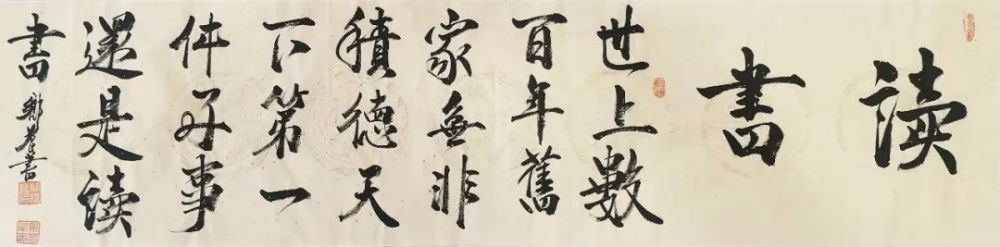 读書
世上數
百年舊
家無非
積德天
下第一
件好事
還是读
書